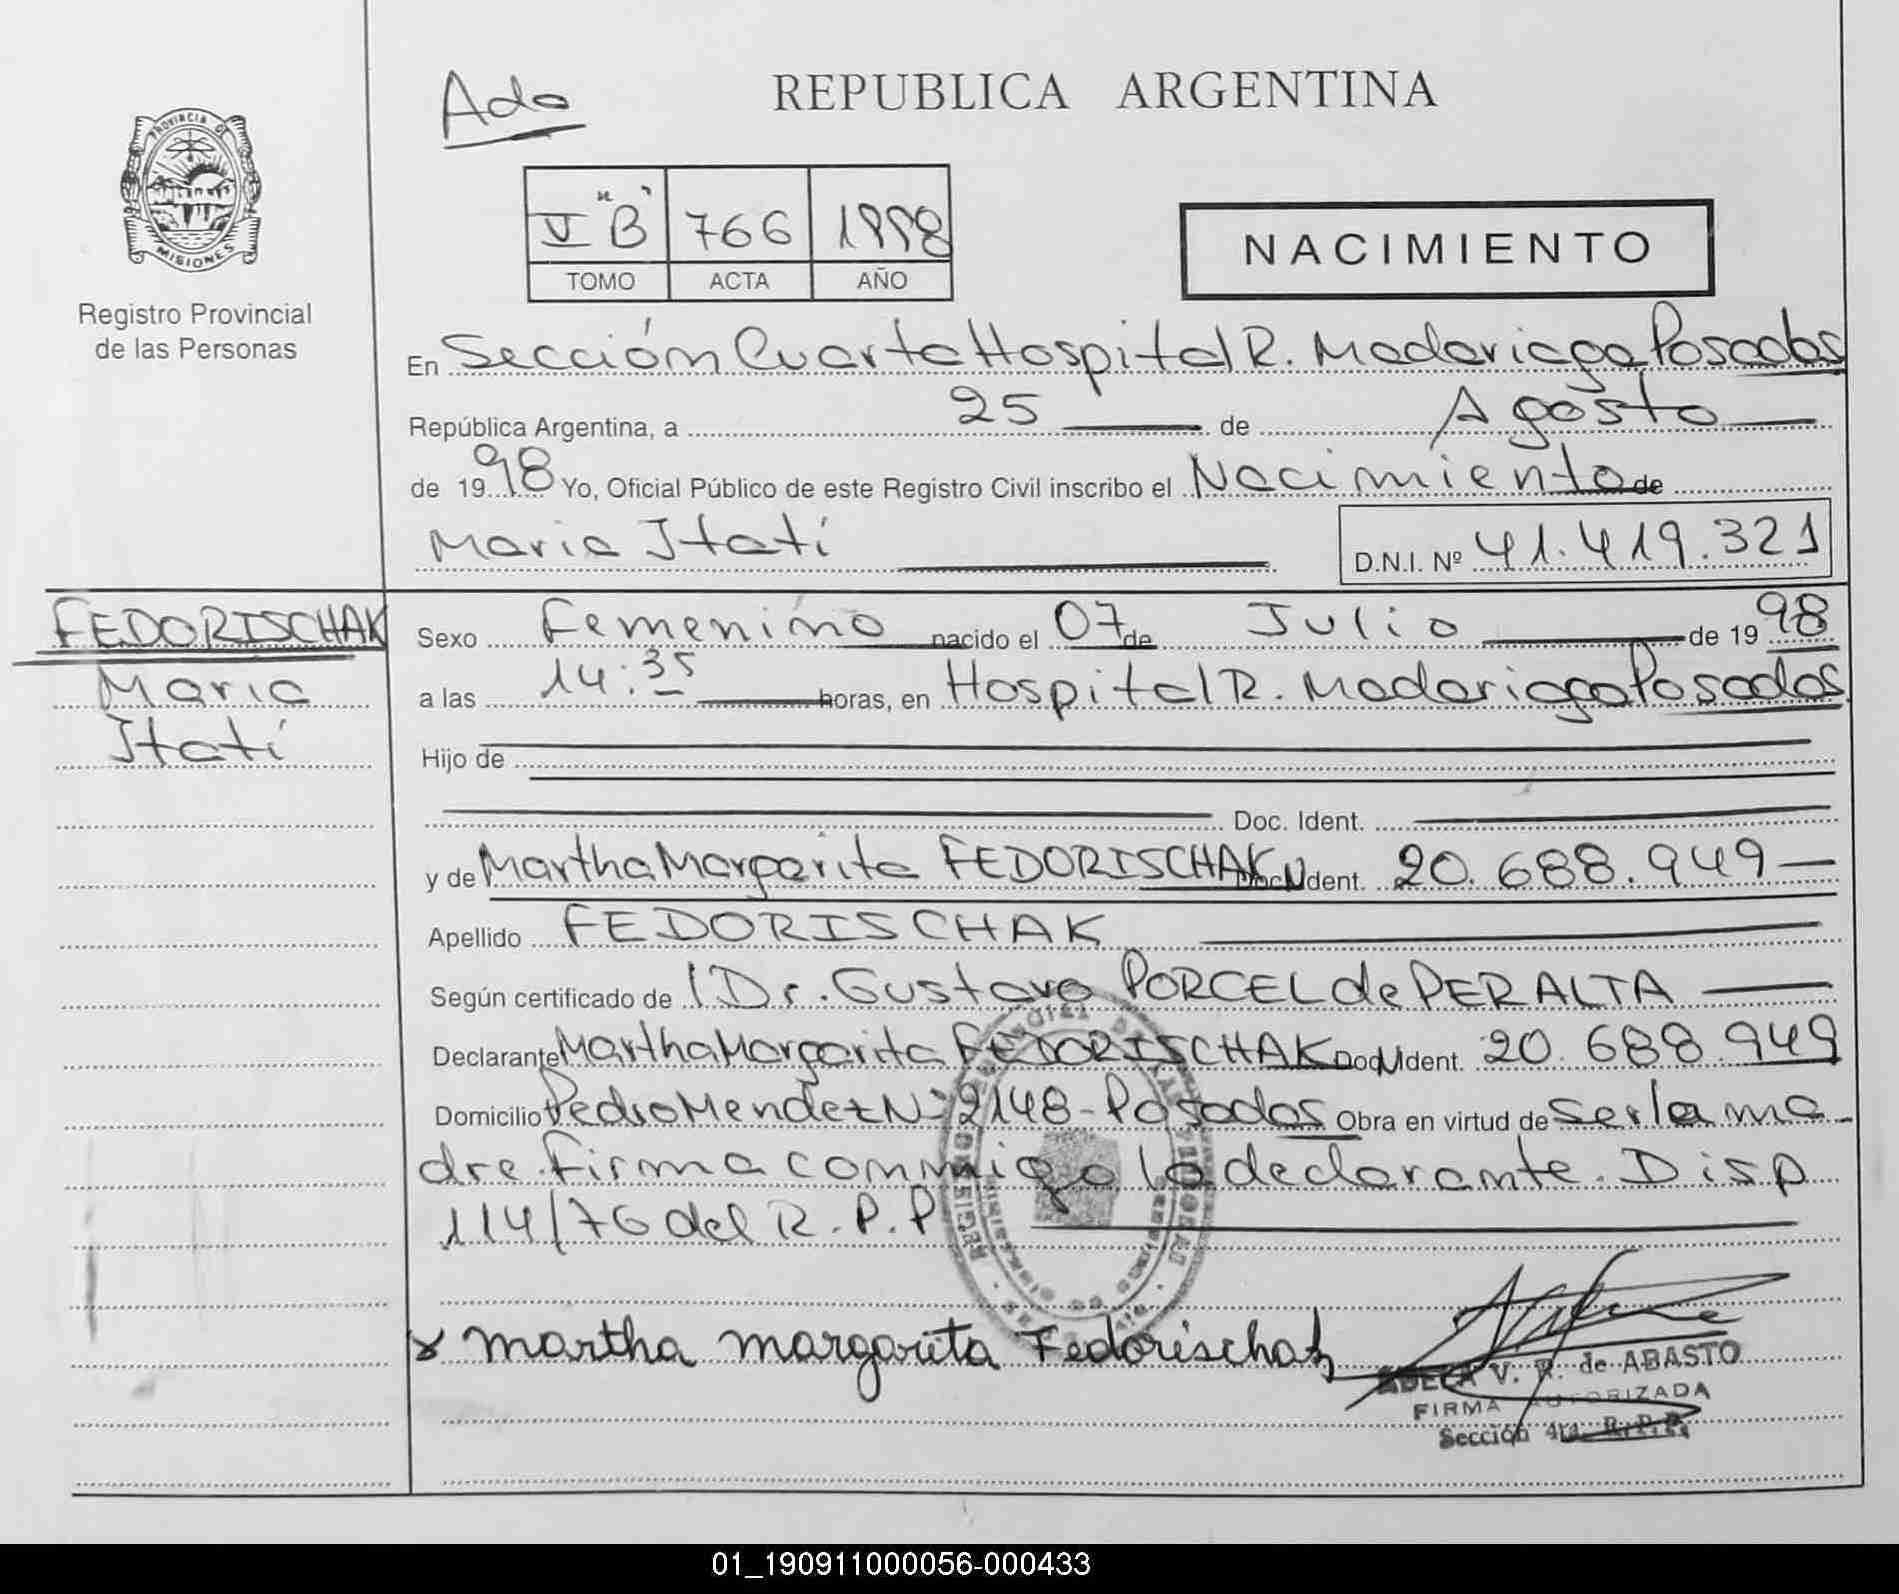 Ado
REPUBLICA ARGENTINA
PROVINCIA DE
MISIONES
Registro Provincial
de las Personas
V "B" 766 1998
TOMO ACTA AÑO
NACIMIENTO
En Sección Cuarta Hospital R. Madariaga Posadas
República Argentina, a 25 de Agosto
de 1998 Yo, Oficial Público de este Registro Civil inscribo el Nacimiento de
Maria Itatí D.N.I. Nº 41.419.321
FEDORISCHAK
Maria
Itatí
Sexo Femenino nacido el 07 de Julio de 1998
a las 14:35 horas, en Hospital R. Madariaga Posadas
Hijo de
Doc. Ident.
y de Martha Margarita FEDORISCHAK Doc. Ident. 20.688.949
Apellido FEDORISCHAK
Según certificado de Dr. Gustavo PORCEL de PERALTA
Declarante Martha Margarita FEDORISCHAK Doc. Ident. 20.688.949
Domicilio Pedro Mendez Nº 2148 - Posadas Obra en virtud de ser la ma
dre. Firma conmigo la declarante. Disp
114/76 del R.P.P
x martha margarita Fedorischak
ADELA V. R. de ABASTO
FIRMA AUTORIZADA
Sección 4ta. R.P.P.
01_190911000056-000433